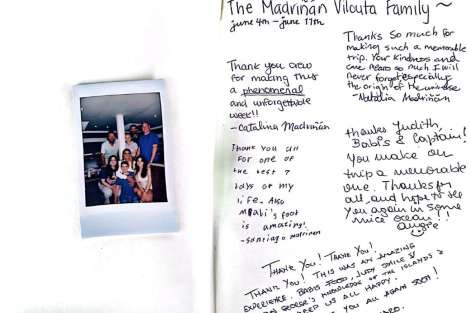 The Madriñan Vilouta Family ~
june 4th - june 11th
Thank you crew
for making this
a phenomenal
and unforgettable
week!!
- Catalina Madriñan
Thank you all
for one of
the best 7
days of my
life. Also
food
is amazing!
- Santiago Madriñan
Thanks so much for
making such a memorable
trip. Your kindness and
care so much I will
never forget especially
the origin of the universe
- Natalia Madriñán
thanks Judith,
Babis & Captain!
You make our
trip a memorable
one. Thanks for
all, and hope to see
you again in some
nice ocean!!
Angie
Thank you! Thank you!
Thank you! This was an amazing
experience. Babis food, Judy smile &
George's knowledge of the islands
keep us all happy.
you all again soon!